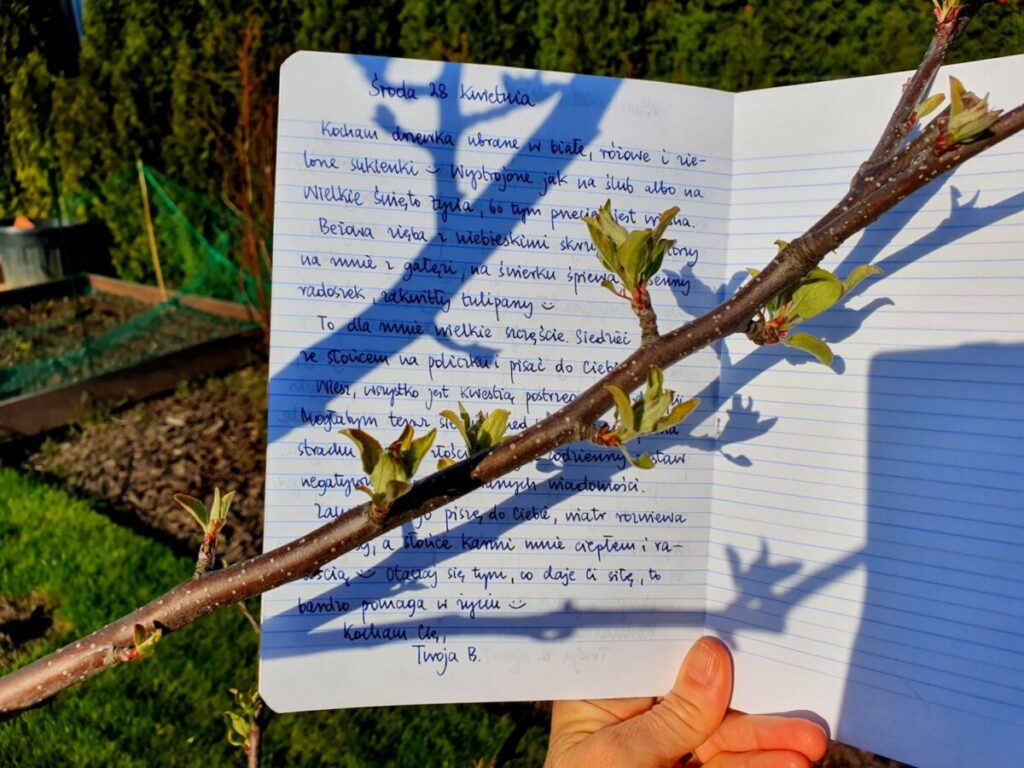 Środa 28 kwietnia
Kocham drzewka ubrane w białe, różowe i zie-
lone sukienki Wystrojone jak na ślub albo na
Wielkie święto życia, bo tym przecież jest wiosna.
Beżowa zięba z niebieskimi
na mnie z gałęzi, na świerku śpiewa
radośnie, zakwitły tulipany
To dla mnie wielkie szczęście. Siedzieć
ze słońcem na policzku i pisać do Ciebie
Wiesz, wszystko jest kwestią
Mogłabym teraz
strachu codzienny
negatywnych wiadomości.
piszę do Ciebie, wiatr rozwiewa
a słońce karmi mnie ciepłem i ra-
Otaczaj się tym, co daje Ci siłę, to
bardzo pomaga w życiu
Kocham Cię,
Twoja B.